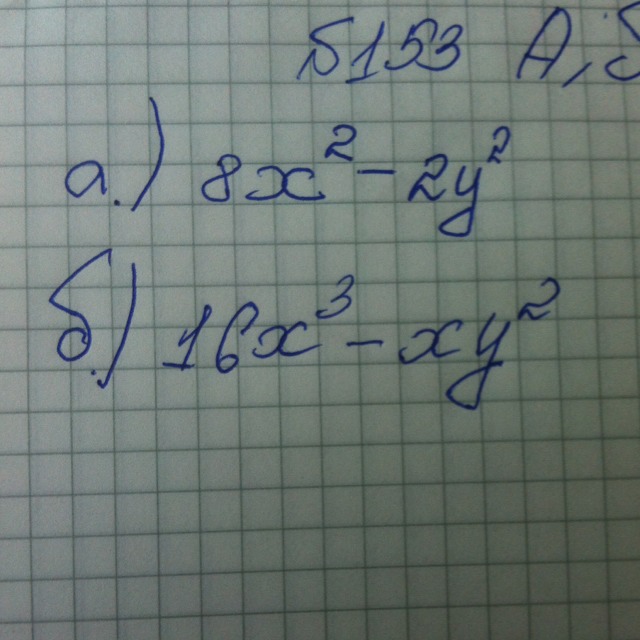 §153
а) 8x² - 2y²
б) 16x³ - xy²